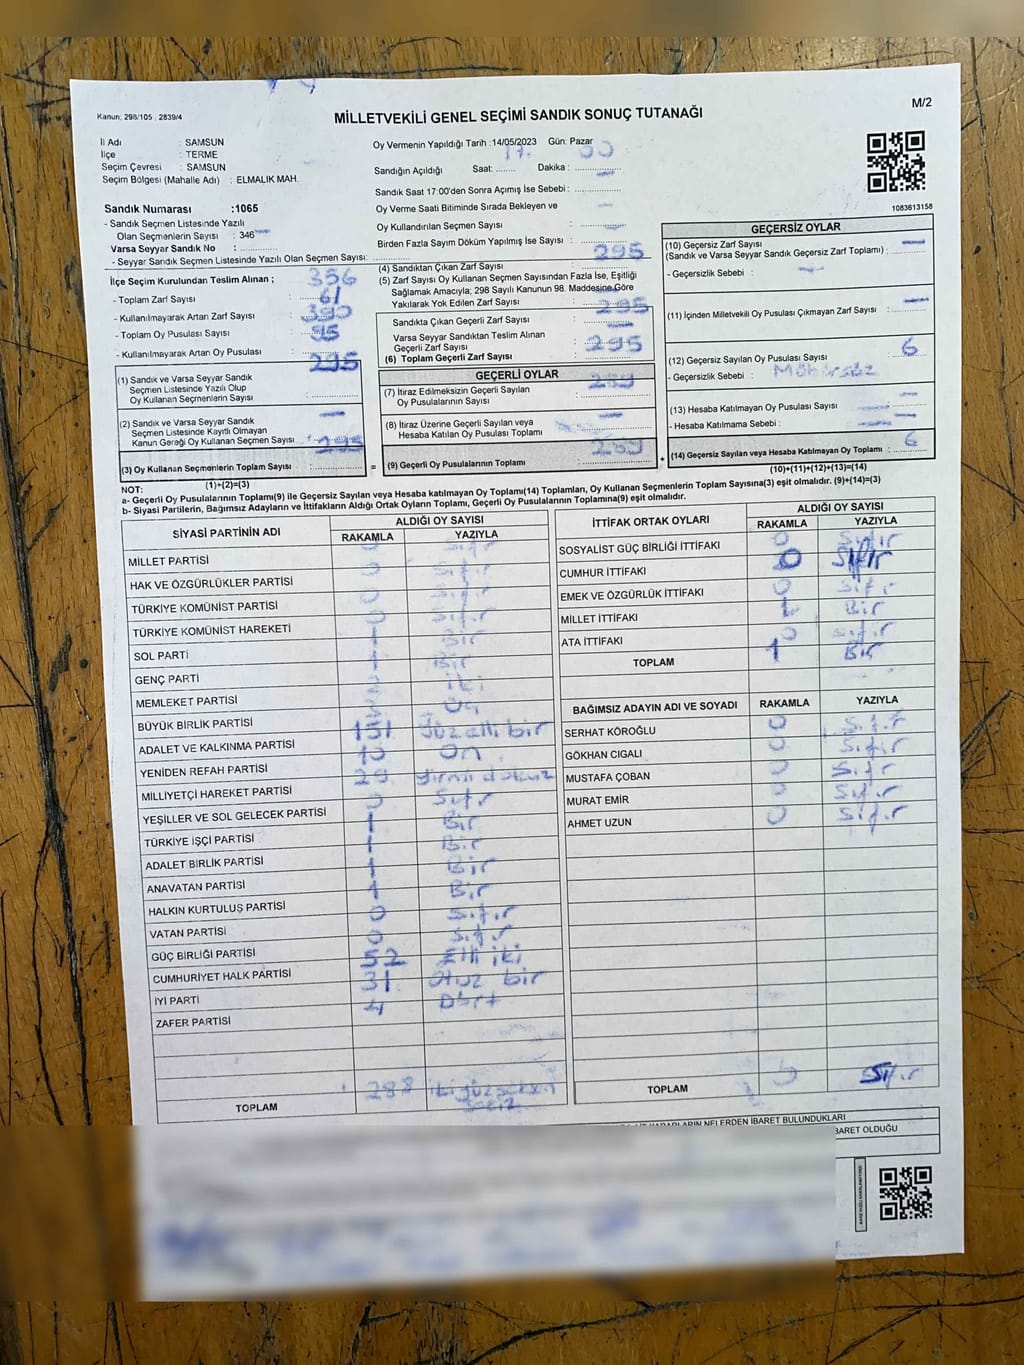 M/2
Kanun: 298/105, 2839/4
MİLLETVEKİLİ GENEL SEÇİMİ SANDIK SONUÇ TUTANAĞI
İl Adı : SAMSUN
İlçe : TERME
Seçim Çevresi : SAMSUN
Seçim Bölgesi (Mahalle Adı) : ELMALIK MAH.
Oy Vermenin Yapıldığı Tarih :14/05/2023 Gün: Pazar
Sandığın Açıldığı Saat: 17. Dakika : 00
Sandık Saat 17:00'den Sonra Açımış İse Sebebi :
Oy Verme Saati Bitiminde Sırada Bekleyen ve
Oy Kullandırılan Seçmen Sayısı :
Birden Fazla Sayım Döküm Yapılmış İse Sayısı :
1083613158
Sandık Numarası :1065
- Sandık Seçmen Listesinde Yazılı
Olan Seçmenlerin Sayısı : 346
Varsa Seyyar Sandık No :
- Seyyar Sandık Seçmen Listesinde Yazılı Olan Seçmen Sayısı:
İlçe Seçim Kurulundan Teslim Alınan ;
- Toplam Zarf Sayısı : 356
- Kullanılmayarak Artan Zarf Sayısı : 61
- Toplam Oy Pusulası Sayısı : 390
- Kullanılmayarak Artan Oy Pusulası : 95
(1) Sandık ve Varsa Seyyar Sandık
Seçmen Listesinde Yazılı Olup
Oy Kullanan Seçmenlerin Sayısı : 295
(2) Sandık ve Varsa Seyyar Sandık
Seçmen Listesinde Kayıtlı Olmayan
Kanun Gereği Oy Kullanan Seçmen Sayısı :
(3) Oy Kullanan Seçmenlerin Toplam Sayısı : 295
(1)+(2)=(3)
(4) Sandıktan Çıkan Zarf Sayısı : 295
(5) Zarf Sayısı Oy Kullanan Seçmen Sayısından Fazla İse, Eşitliği
Sağlamak Amacıyla; 298 Sayılı Kanunun 98. Maddesine Göre
Yakılarak Yok Edilen Zarf Sayısı :
Sandıkta Çıkan Geçerli Zarf Sayısı : 295
Varsa Seyyar Sandıktan Teslim Alınan
Geçerli Zarf Sayısı :
(6) Toplam Geçerli Zarf Sayısı : 295
GEÇERLİ OYLAR
(7) İtiraz Edilmeksizin Geçerli Sayılan
Oy Pusulalarının Sayısı : 289
(8) İtiraz Üzerine Geçerli Sayılan veya
Hesaba Katılan Oy Pusulası Toplamı :
= (9) Geçerli Oy Pusulalarının Toplamı : 289 +
GEÇERSİZ OYLAR
(10) Geçersiz Zarf Sayısı
(Sandık ve Varsa Seyyar Sandık Geçersiz Zarf Toplamı) :
- Geçersizlik Sebebi :
(11) İçinden Milletvekili Oy Pusulası Çıkmayan Zarf Sayısı :
(12) Geçersiz Sayılan Oy Pusulası Sayısı : 6
- Geçersizlik Sebebi : Mühürsüz
(13) Hesaba Katılmayan Oy Pusulası Sayısı :
- Hesaba Katılmama Sebebi :
(14) Geçersiz Sayılan veya Hesaba Katılmayan Oy Toplamı : 6
(10)+(11)+(12)+(13)=(14)
NOT:
a- Geçerli Oy Pusulalarının Toplamı(9) ile Geçersiz Sayılan veya Hesaba katılmayan Oy Toplamı(14) Toplamları, Oy Kullanan Seçmenlerin Toplam Sayısına(3) eşit olmalıdır. (9)+(14)=(3)
b- Siyasi Partilerin, Bağımsız Adayların ve İttifakların Aldığı Ortak Oyların Toplamı, Geçerli Oy Pusulalarının Toplamına(9) eşit olmalıdır.
SİYASİ PARTİNİN ADI ALDIĞI OY SAYISI
RAKAMLA YAZIYLA
MİLLET PARTİSİ 0 Sıfır
HAK VE ÖZGÜRLÜKLER PARTİSİ 0 Sıfır
TÜRKİYE KOMÜNİST PARTİSİ 0 Sıfır
TÜRKİYE KOMÜNİST HAREKETİ 0 Sıfır
SOL PARTİ 1 Bir
GENÇ PARTİ 1 Bir
MEMLEKET PARTİSİ 2 iki
BÜYÜK BİRLİK PARTİSİ 3 Üç
ADALET VE KALKINMA PARTİSİ 151 Yüz elli bir
YENİDEN REFAH PARTİSİ 10 On
MİLLİYETÇİ HAREKET PARTİSİ 29 Yirmi dokuz
YEŞİLLER VE SOL GELECEK PARTİSİ 0 Sıfır
TÜRKİYE İŞÇİ PARTİSİ 1 Bir
ADALET BİRLİK PARTİSİ 1 Bir
ANAVATAN PARTİSİ 1 Bir
HALKIN KURTULUŞ PARTİSİ 1 Bir
VATAN PARTİSİ 0 Sıfır
GÜÇ BİRLİĞİ PARTİSİ 0 Sıfır
CUMHURİYET HALK PARTİSİ 52 Elli iki
İYİ PARTİ 31 Otuz bir
ZAFER PARTİSİ 4 Dört
TOPLAM 288 iki yüz seksen sekiz
İTTİFAK ORTAK OYLARI ALDIĞI OY SAYISI
RAKAMLA YAZIYLA
SOSYALİST GÜÇ BİRLİĞİ İTTİFAKI 0 Sıfır
CUMHUR İTTİFAKI 0 Sıfır
EMEK VE ÖZGÜRLÜK İTTİFAKI 0 Sıfır
MİLLET İTTİFAKI 1 Bir
ATA İTTİFAKI 0 Sıfır
TOPLAM 1 Bir
BAĞIMSIZ ADAYIN ADI VE SOYADI RAKAMLA YAZIYLA
SERHAT KÖROĞLU 0 Sıfır
GÖKHAN CIGALI 0 Sıfır
MUSTAFA ÇOBAN 0 Sıfır
MURAT EMİR 0 Sıfır
AHMET UZUN 0 Sıfır
TOPLAM 0 Sıfır
KARARLARIN NELERDEN İBARET BULUNDUKLARI
İBARET OLDUĞU